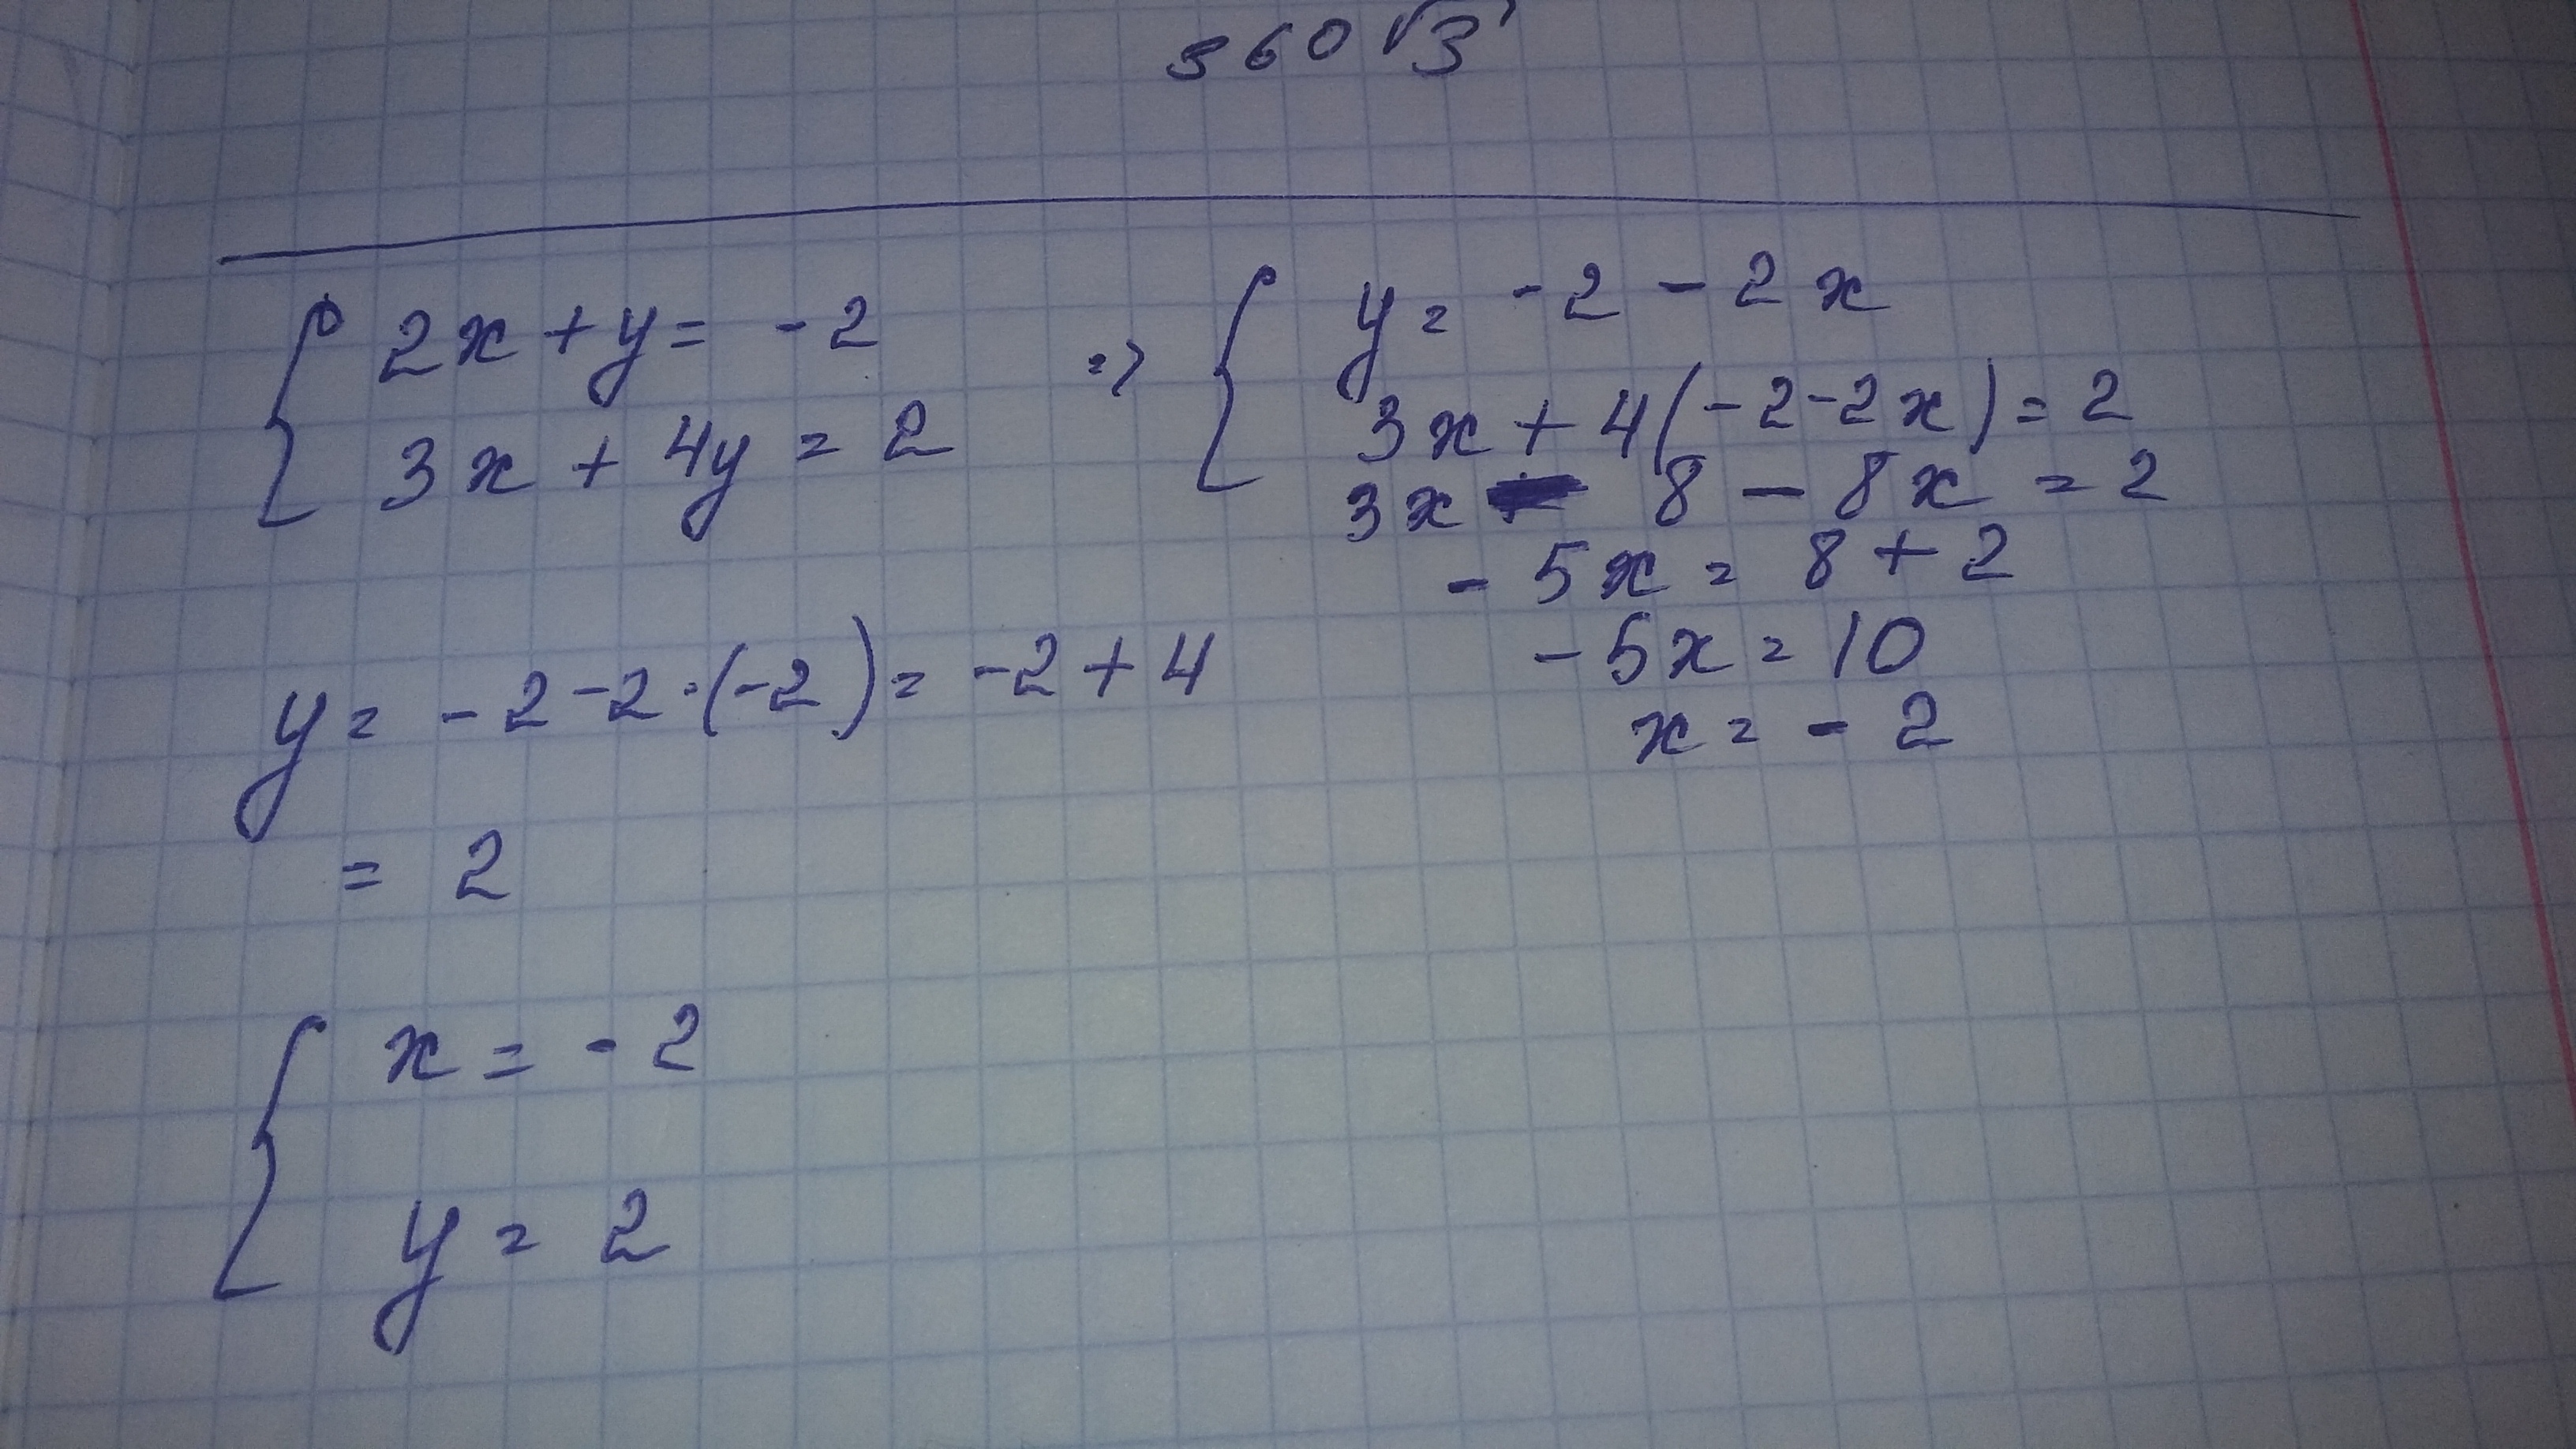 360√3
{ 2x + y = -2
3x + 4y = 2
=> { y = -2 - 2x
3x + 4(-2-2x) = 2
3x - 8 - 8x = 2
-5x = 8 + 2
-5x = 10
x = -2
y = -2-2·(-2) = -2+4
= 2
{ x = -2
y = 2